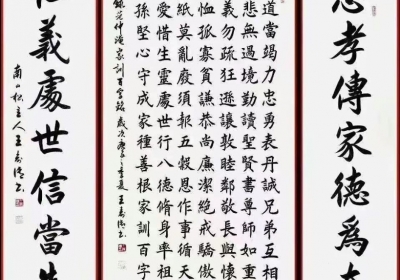 孝傳家德為
道當竭力忠勇表丹誠兄弟互相
悲無過境勤讀聖賢書尊師如重
義勿疏狂遜讓敦睦鄰敬長與懷
恤孤寡貧謙恭尚廉潔絕戒驕傲
紙莫亂廢須報五穀恩作事循天
愛惜生靈處世行八德脩身率祖
孫堅心守成家種善根家訓百字
錄范仲淹家訓百字銘歲次
義處世信當
主人王